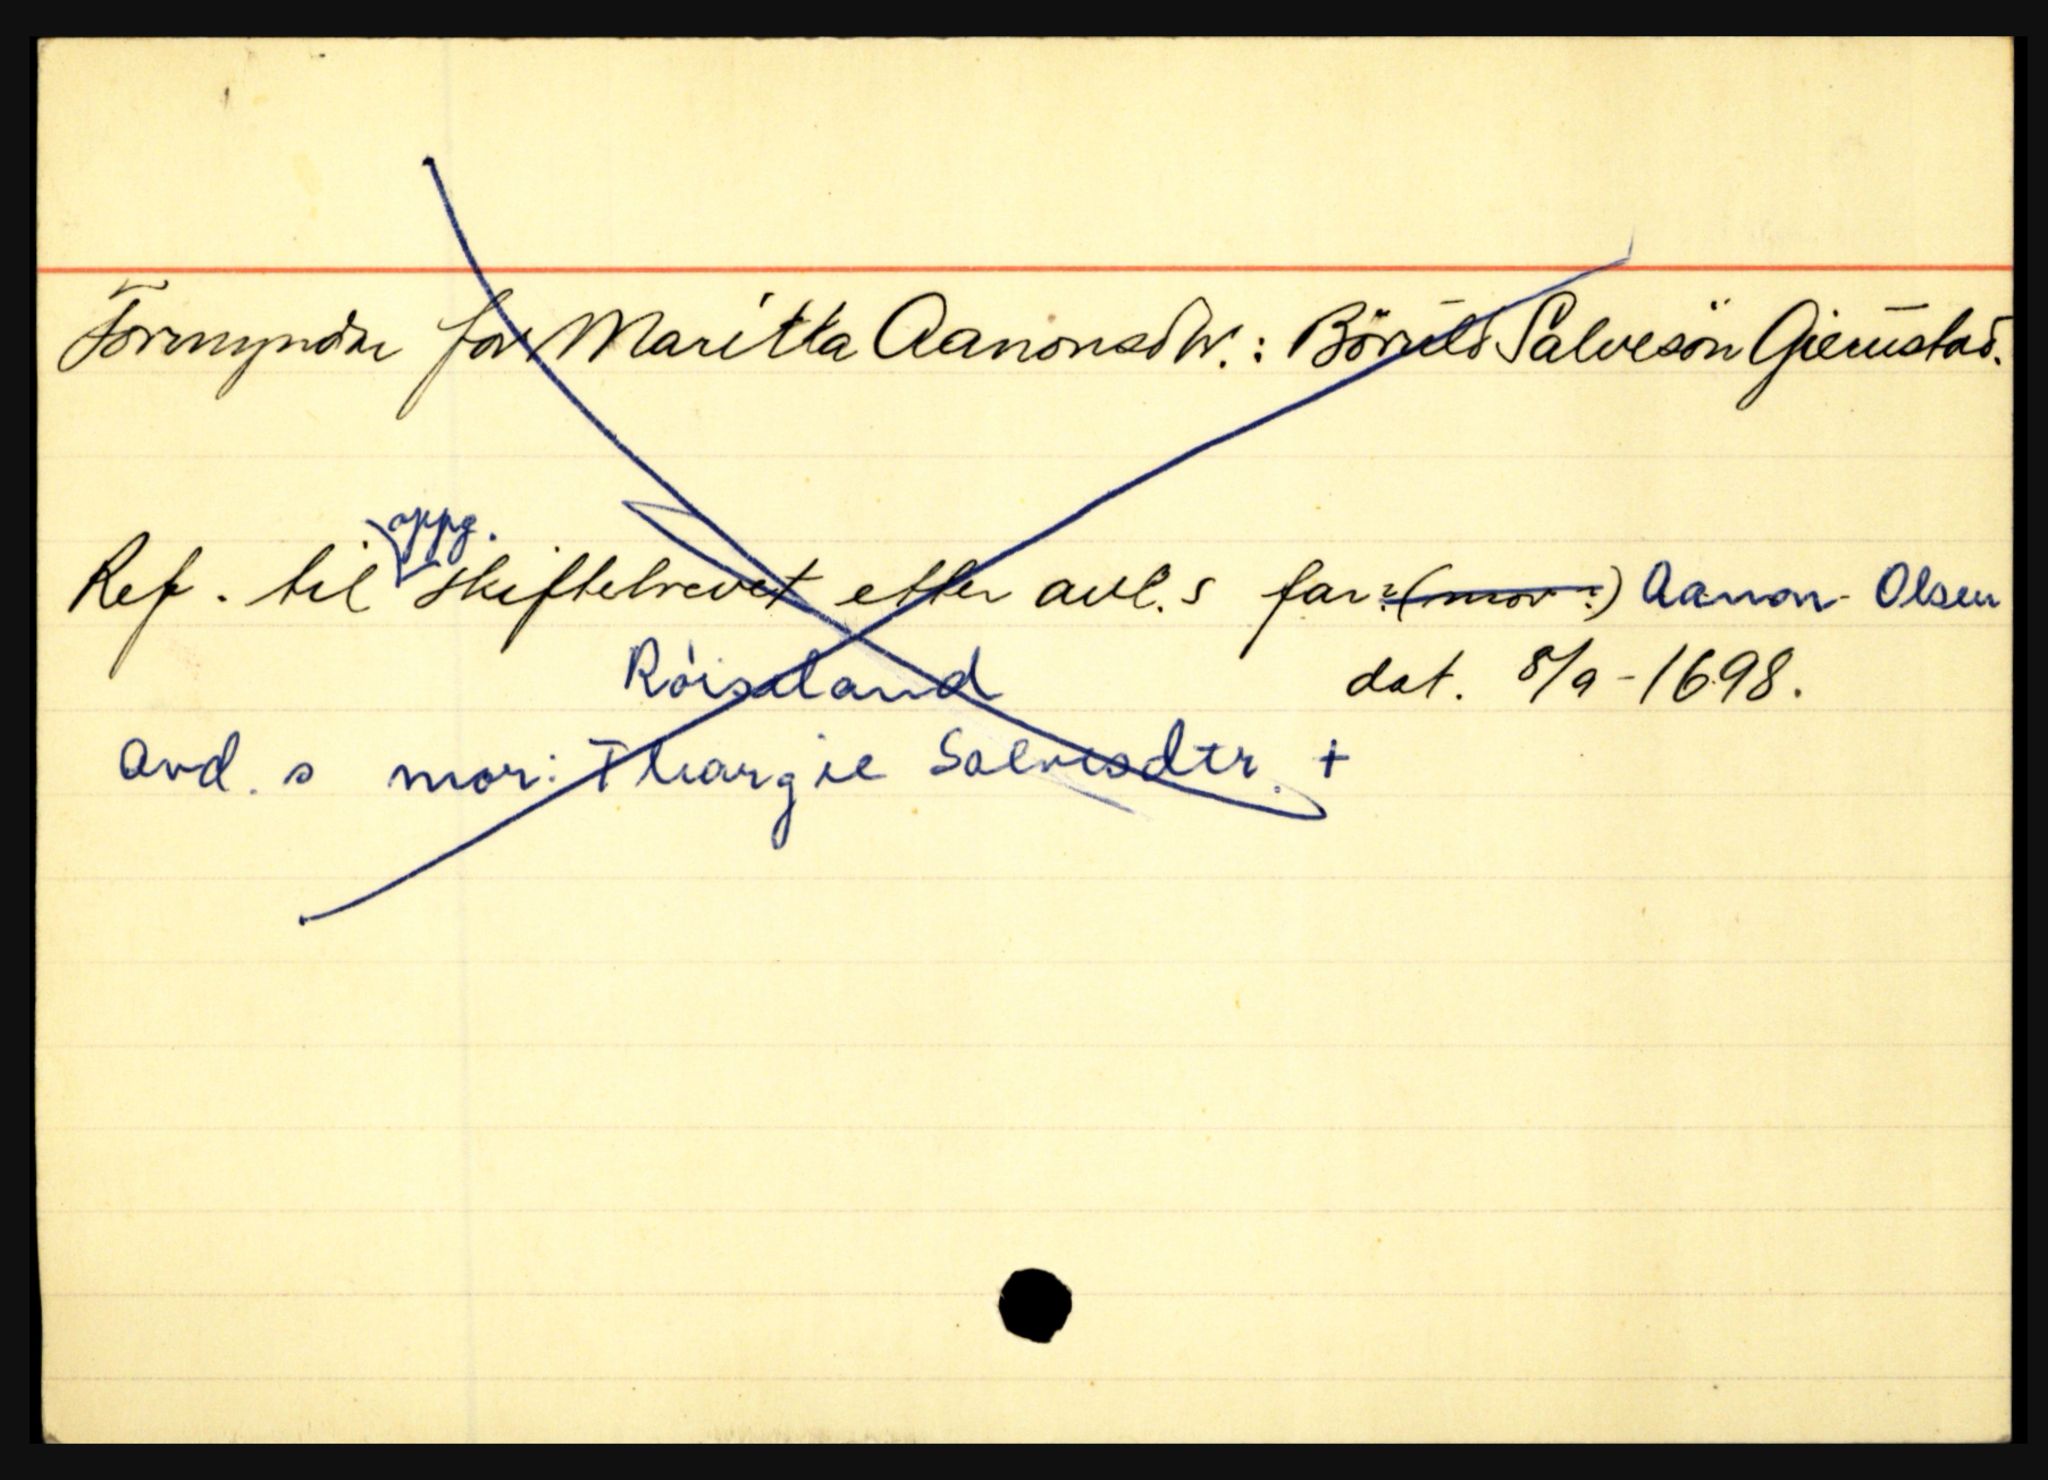 Formynder for Maritta Aanonsdtr.: Böruld Salvesön Gierustad.
oppg.
Ref. til skiftebrevet etter avl.s far?(mor?) Aanon Olsen
Röisland dat. 8/9-1698.
Avd.s mor: Thargie Salvesdtr. +